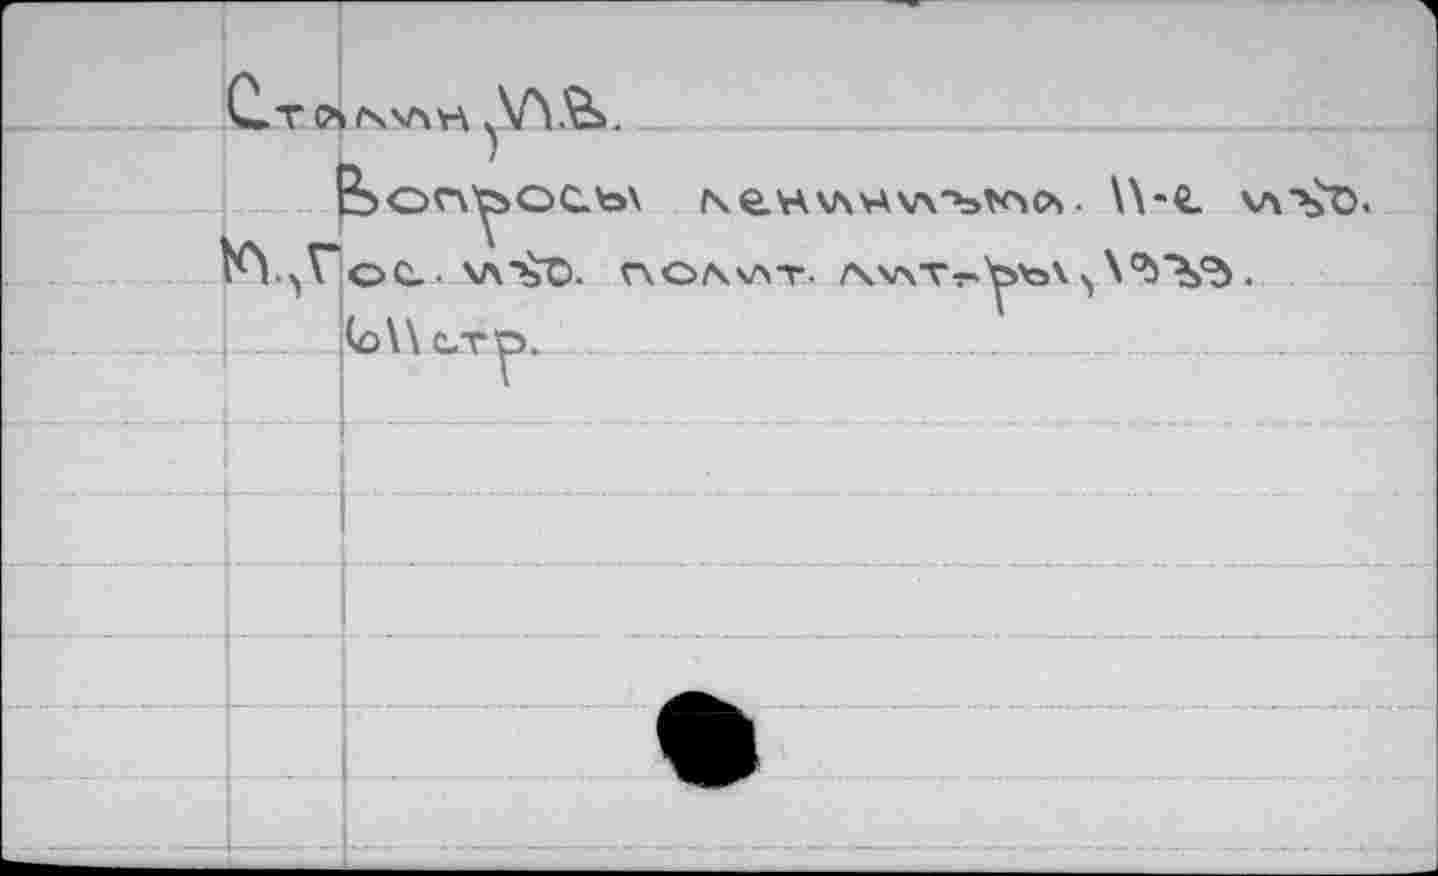 Сталин,И.В.
Вопросы ленинизма. 11-е изд.
М.,Гос. изд. полит. лит-ры,1939.
611 стр.